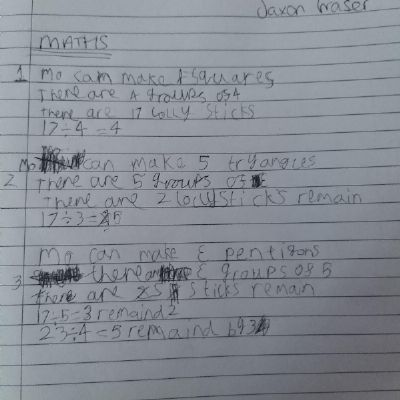 Jaxon Fraser
MATHS
1 Mo can make 4 squares
There are 4 groups of 4
there are 17 lolly sticks
17÷4=4
Mo can make 5 tryangles
2 There are 5 groups of
There are 2 lollysticks remain
17÷3=5
Mo can make 3 pentigons
there 3 groups of 5
3 there are sticks remain
17÷5=3 remaind 2
23÷4=5 remaind by 3